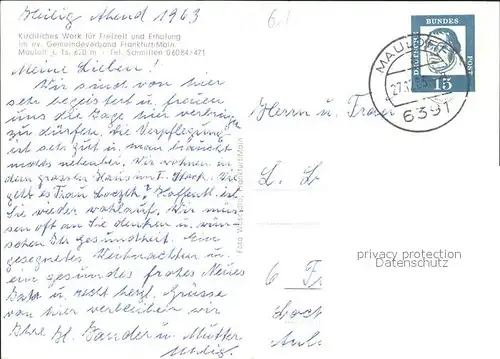 Heilig Abend 1963
Kirchliches Werk für Freizeit und Erholung
im ev. Gemeindeverband Frankfurt/Main
Mauloff i. Ts. 620 m · Tel. Schmitten 06084/471
Meine Lieben!
Wir sind von hier
sehr begeistert u. freuen
uns die Tage hier verbringen
zu dürfen. Die Verpflegung
ist sehr gut u. man braucht
nichts nebenbei. Wir wohnen in
dem grossen Haus im I. Stock. Wie
geht es Frau Hoffentl. ist
Sie wieder wohlauf. Wir müs-
sen oft an Sie denken u. wün-
schen Ihr Gesundheit. Ein
gesegnetes Weihnachten u.
ein gesundes frohes Neues
Jahr u. recht herzl. Grüsse
von hier verbleiben wir
Ihre Gander u. Mutter
Foto Frankfurt/Main
DEUTSCHE
BUNDES
POST
15
MAULOFF
27.12.63
6391
Herrn u. Frau
6
privacy protection
DATENSCHUTZ